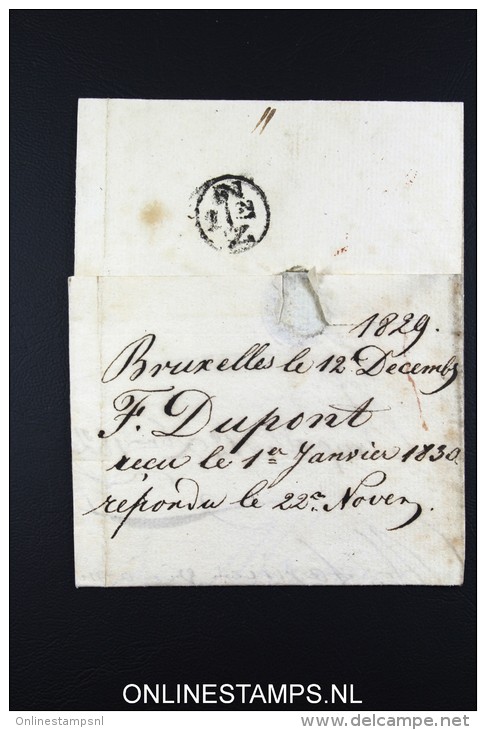 1829.
Bruxelles le 12e Decembr
F. Dupont
reçu le 1er Janvier 1830
répondu le 22e Novem.
ONLINESTAMPS.NL
Onlinestampsnl
www.delcampe.net